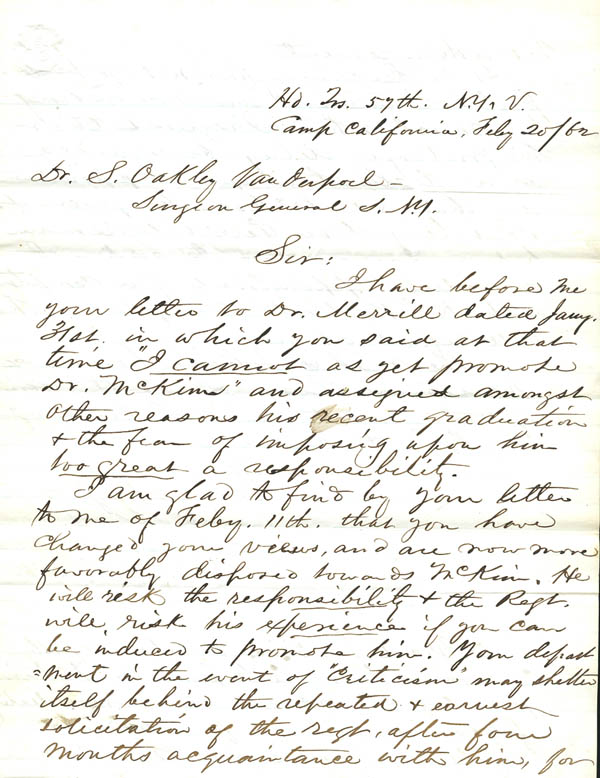 Hd. Qrs. 57th. N.Y. V.
Camp California, Feby 20/62
Dr. S. Oakley Vanderpoel -
Surgeon General S. N.Y.
Sir:
I have before me
your letter to Dr. Merrill dated Jany.
31st. in which you said at that
time "I cannot as yet promote
Dr. McKim" and assigned amongst
other reasons his recent graduation
& the fear of imposing upon him
too great a responsibility.
I am glad to find by your letter
to me of Feby. 11th. that you have
changed your views, and are now more
favorably disposed towards McKim. He
will risk the responsibility & the Regt.
will risk his experience if you can
be induced to promote him. Your depart
=ment in the event of "Criticism" may shelter
itself behind the repeated & earnest
solicitation of the regt, after four
months acquaintance with him, for